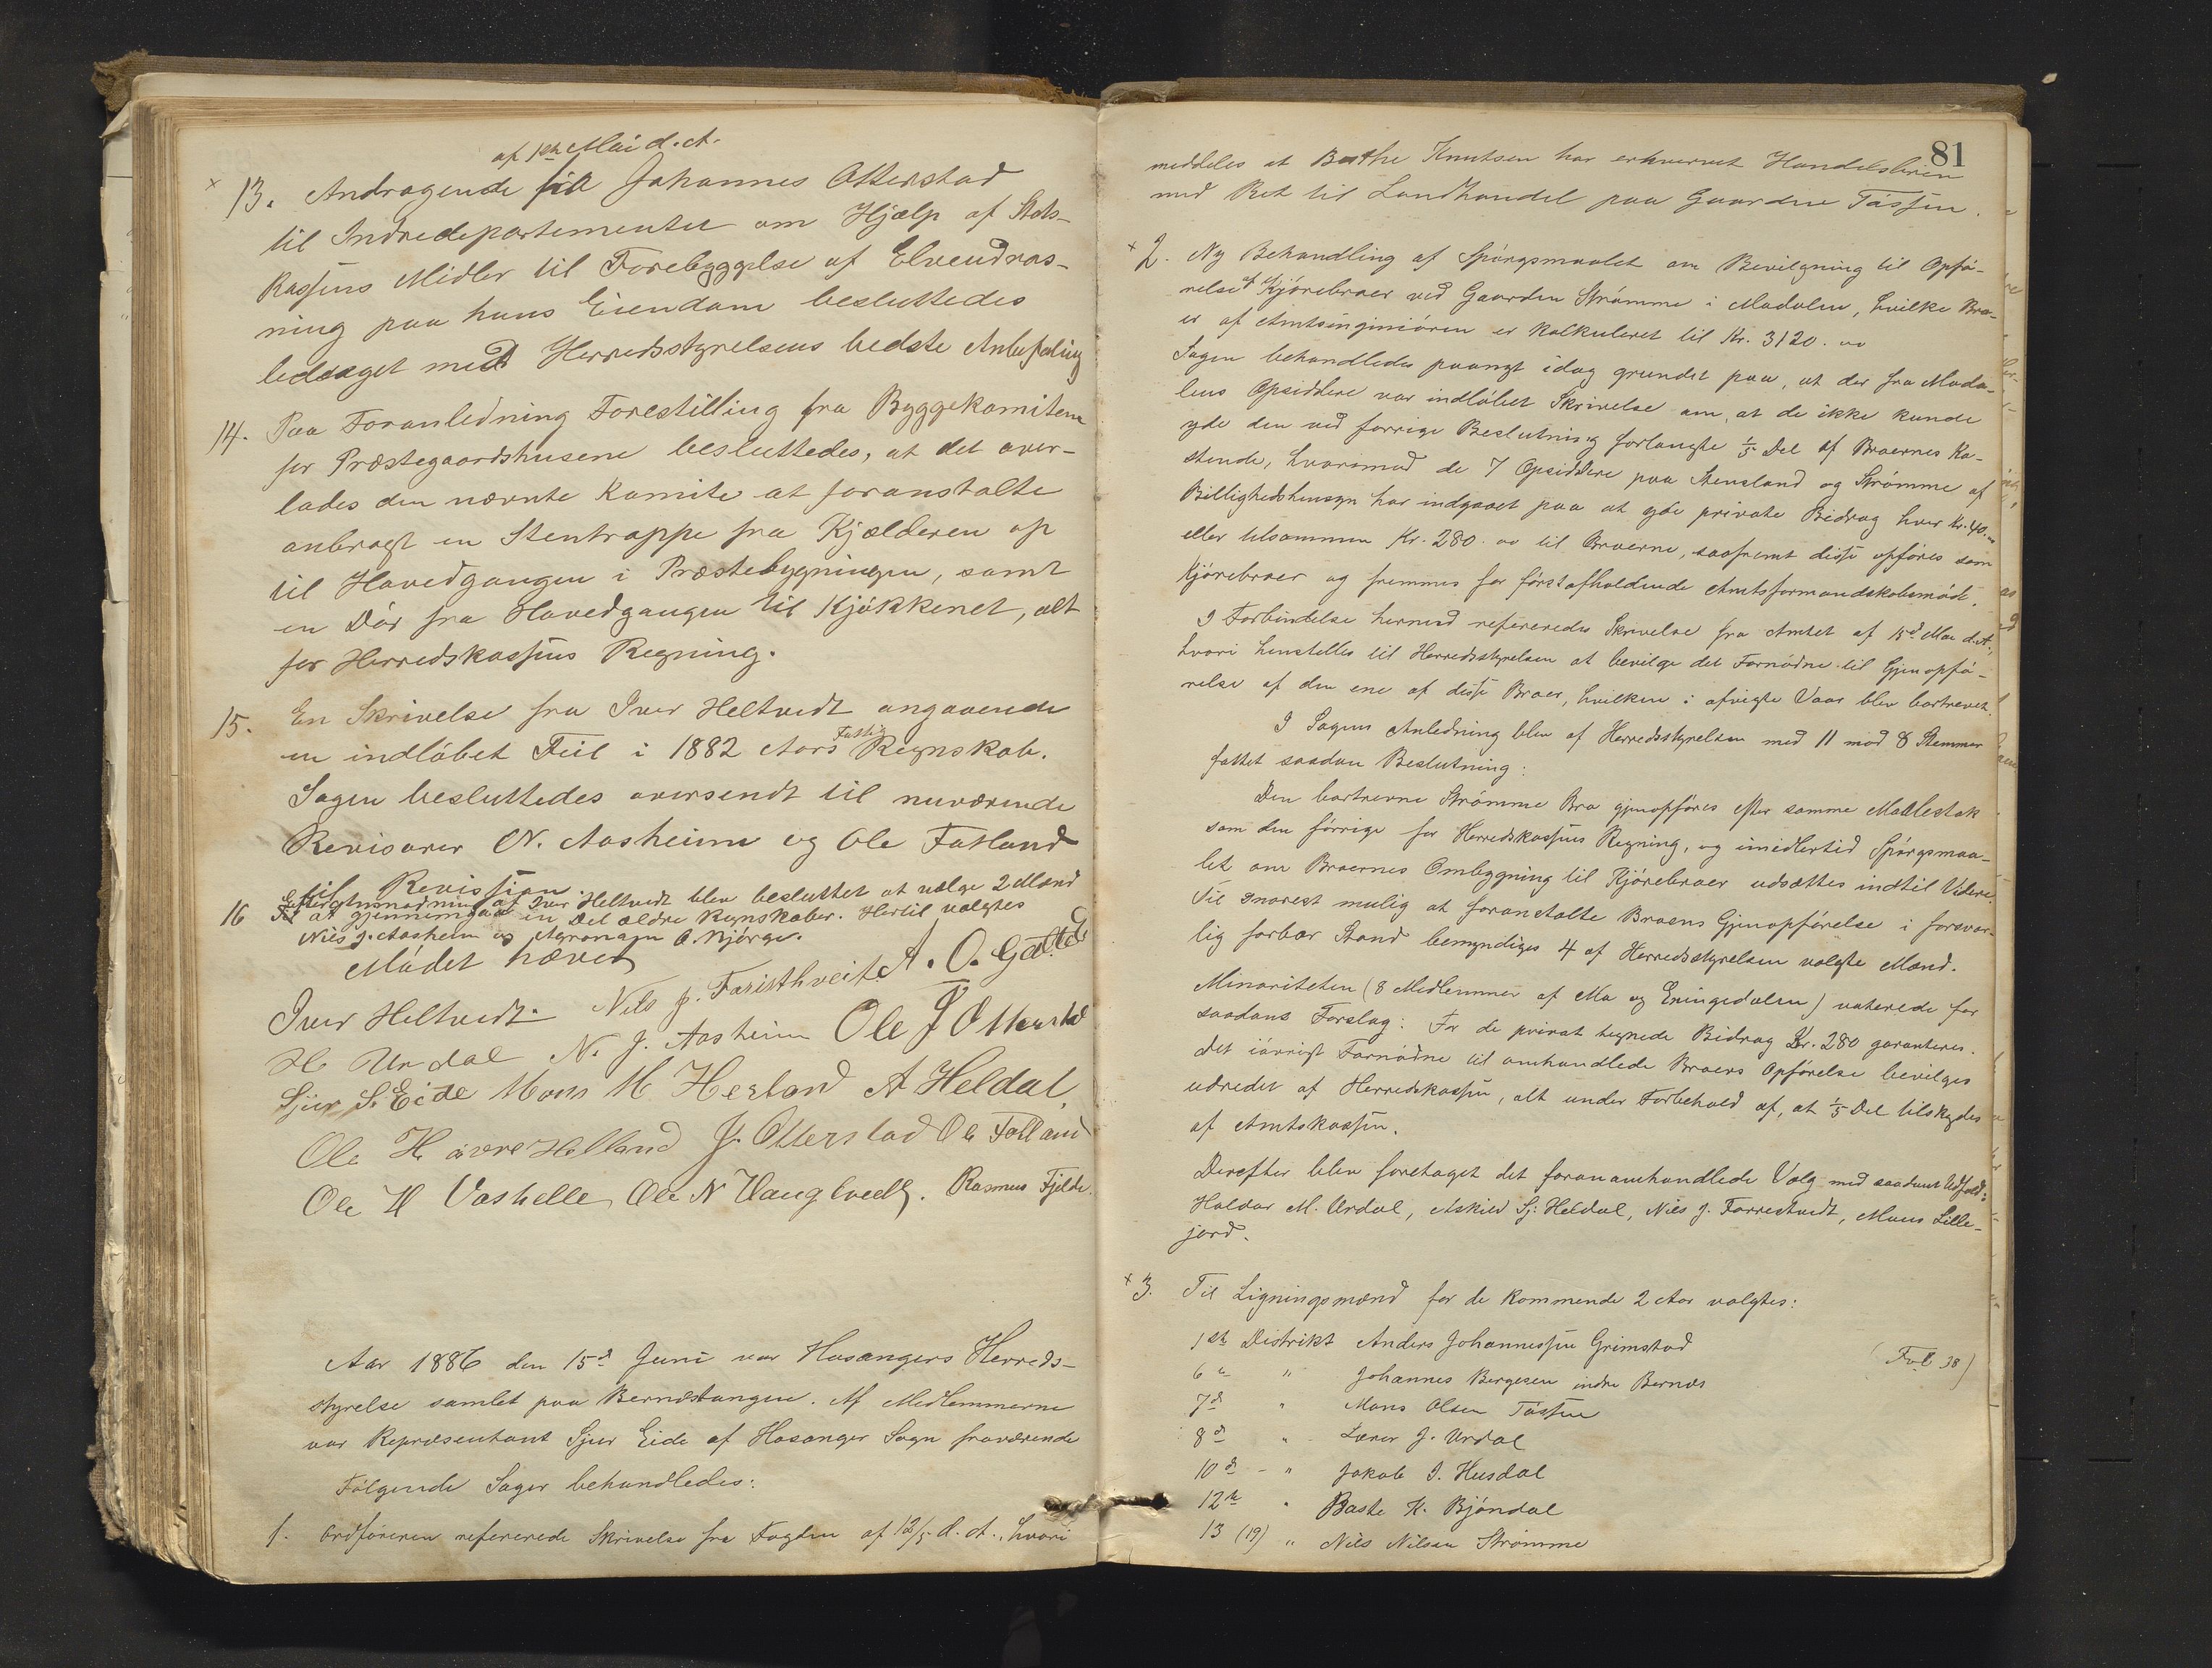 af 1ste Mai d. A.
x 13. Andragende fra Johannes Otterstad
til Indredepartementet om Hjælp af Stats-
kassens Midler til Forebyggelse af Elveudras-
ning paa hans Eiendom besluttedes
ledsaget med Herredsstyrelsens bedste Anbefaling
14. Paa Foranledning Forestilling fra Byggekomiteen
for Præstegaardshusene besluttedes, at det over-
lades den nævnte Komite at foranstalte
anbragt en Stentrappe fra Kjælderen op
til Hovedgangen i Præstebygningen, samt
en Dör fra Hovedgangen til Kjökkenet, alt
for Herredskassens Regning.
15. En Skrivelse fra Iver Heltvedt angaaende
en indlöbet Feil i 1882 Aars Fattig Regnskab.
Sagen besluttedes oversendt til nuværende
Revisorer N. Aasheim og Ole Fatland
til Revission.
16 Efter Anmodning af Iver Heltvedt blev besluttet at vælge 2 Mænd
til at gjennemgaa en Del ældre Regnskaber. Hertil valgtes
Nils J. Aasheim og Agronom O. Bjørge.
Mödet hævet
Iver Heltvedt. Nils J. Faristhveit. A. O. Gattede
H. Urdal N. J. Aasheim Ole J Otterstad
Sjur S. Eide Mons M. Herland A Heldal,
Ole H övre Helland J. Otterstad Ole Fatland
Ole H Vashelle Ole N Haugtvedt. Rasmus Fjelde.
Aar 1886 den 15de Juni var Hosangers Herreds-
styrelse samlet paa Bernestangen. Af Medlemmerne
var Repræsentant Sjur Eide af Hosanger Sogn fraværende
Fölgende Sager behandledes:
1. Ordföreren refererede Skrivelse fra Fogden af 12/5 d. A., hvori
81
meddeles at Berthe Knutsen har erhvervet Handelsbrev
med Ret til Landhandel paa Gaarden Tössen.
x 2. Ny Behandling af Spörgsmaalet om Bevilgning til Opfö-
relse af Kjörebroer ved Gaarden Strömme i Modalen, hvilke Bro-
er af Amtsingeniören er kalkuleret til Kr. 3120. oo
Sagen behandledes paanyt idag grundet paa, at der fra Moda-
lens Opsiddere var indlöbet Skrivelse om, at de ikke kunde
yde den ved forrige Beslutning forlangte 1/5 Del af Broernes Ko-
stende, hvorimod de 7 Opsiddere paa Stensland og Strömme af
Billighedshensyn har indgaaet paa at yde private Bidrag hver Kr. 40. oo
eller tilsammen Kr. 280. oo til Broerne, saafremt disse opföres som
Kjörebroer og fremmes for förstafholdende Amtsformandskabsmöde.
I Forbindelse hermed refereredes Skrivelse fra Amtet af 15d Mai d. A.,
hvori henstilles til Herredsstyrelsen at bevilge det Fornödne til Gjenopfö-
relse af den ene af disse Broer, hvilken i afvigte Vaar blev bortrevet.
I Sagens Anledning blev af Herredsstyrelsen med 11 mod 8 Stemmer
fattet saadan Beslutning:
Den bortrevne Strömme Bro gjenopföres efter samme Maalestok
som den forrige for Herredskassens Regning, og imidlertid Spörgsmaa-
let om Broernes Ombygning til Kjörebroer udsættes indtil Videre.
Til snarest mulig at foranstalte Broens Gjenopförelse i forsvar-
lig farbar Stand bemyndiges 4 af Herredsstyrelsen valgte Mænd.
Minoriteten (8 Medlemmer af Mo og Eningedalen) voterede for
saadant Forslag: For de privat tegnede Bidrag Kr. 280 garanteres.
det iövrigt Fornödne til omhandlede Broers Opförelse bevilges
udredet af Herredskassen, alt under Forbehold af, at 1/5 Del tilskydes
af Amtskassen.
Derefter blev foretaget det foranomhandlede Valg med saadant Udfald:
Haldor M. Urdal, Askild Sj. Heldal, Nils J. Farrestvedt, Mons Lille-
jord.
x 3. Til Ligningsmænd for de kommende 2 Aar valgtes:
1ste Distrikt Anders Johannessen Grimstad
(Fol 38)
6te " Johannes Börgesen indre Bernæs
7de " Mons Olsen Tössen
8de " Lærer J. Urdal
10de - " Jakob I. Husdal
12te " Baste K. Bjöndal
13 (19) " Nils Nilsen Strömme